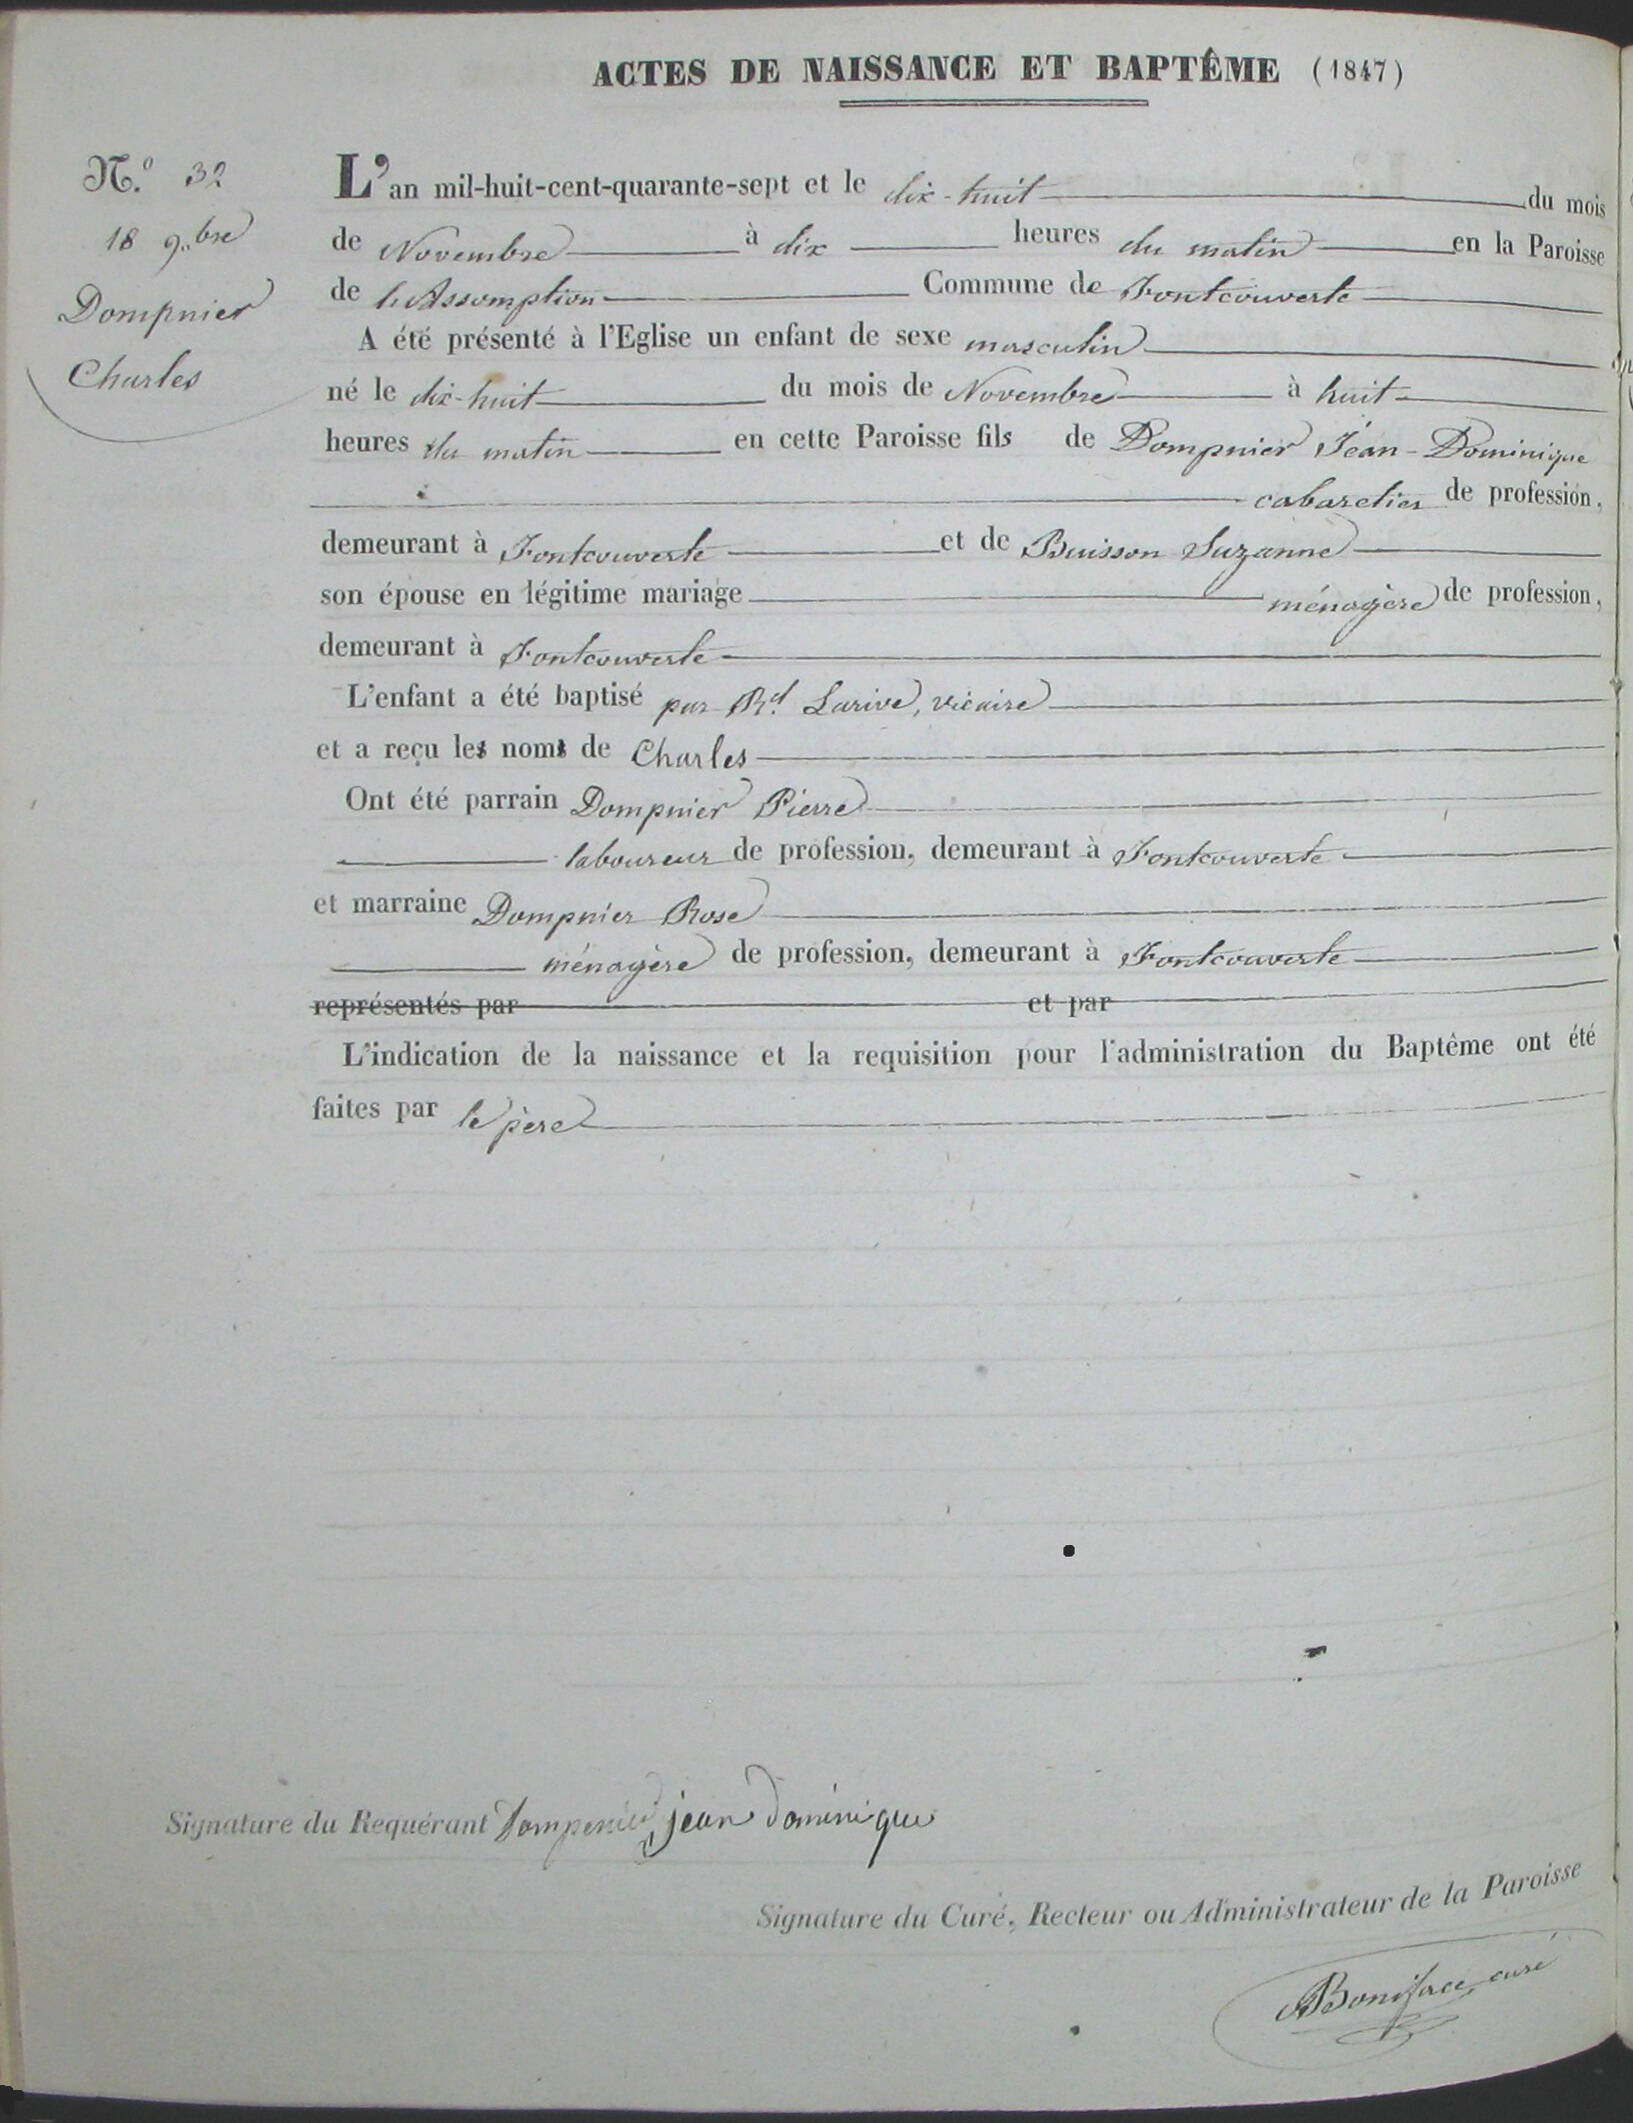 ACTES DE NAISSANCE ET BAPTÊME (1847)
N.º 32
18 9.bre
Dompnier
Charles
L'an mil-huit-cent-quarante-sept et le dix-huit du mois
de Novembre à dix heures du matin en la Paroisse
de l'Assomption Commune de Fontcouverte
A été présenté à l'Eglise un enfant de sexe masculin
né le dix-huit du mois de Novembre à huit
heures du matin en cette Paroisse fils de Dompnier Jean-Dominique
cabaretier de profession,
demeurant à Fontcouverte et de Buisson Suzanne
son épouse en légitime mariage ménagère de profession,
demeurant à Fontcouverte
L'enfant a été baptisé par Rd. Larive, vicaire
et a reçu les noms de Charles
Ont été parrain Dompnier Pierre
laboureur de profession, demeurant à Fontcouverte
et marraine Dompnier Rose
ménagère de profession, demeurant à Fontcouverte
représentés par et par
L'indication de la naissance et la requisition pour l'administration du Baptême ont été
faites par le père
Signature du Requérant jean dominique
Signature du Curé, Recteur ou Administrateur de la Paroisse
Boniface, curé